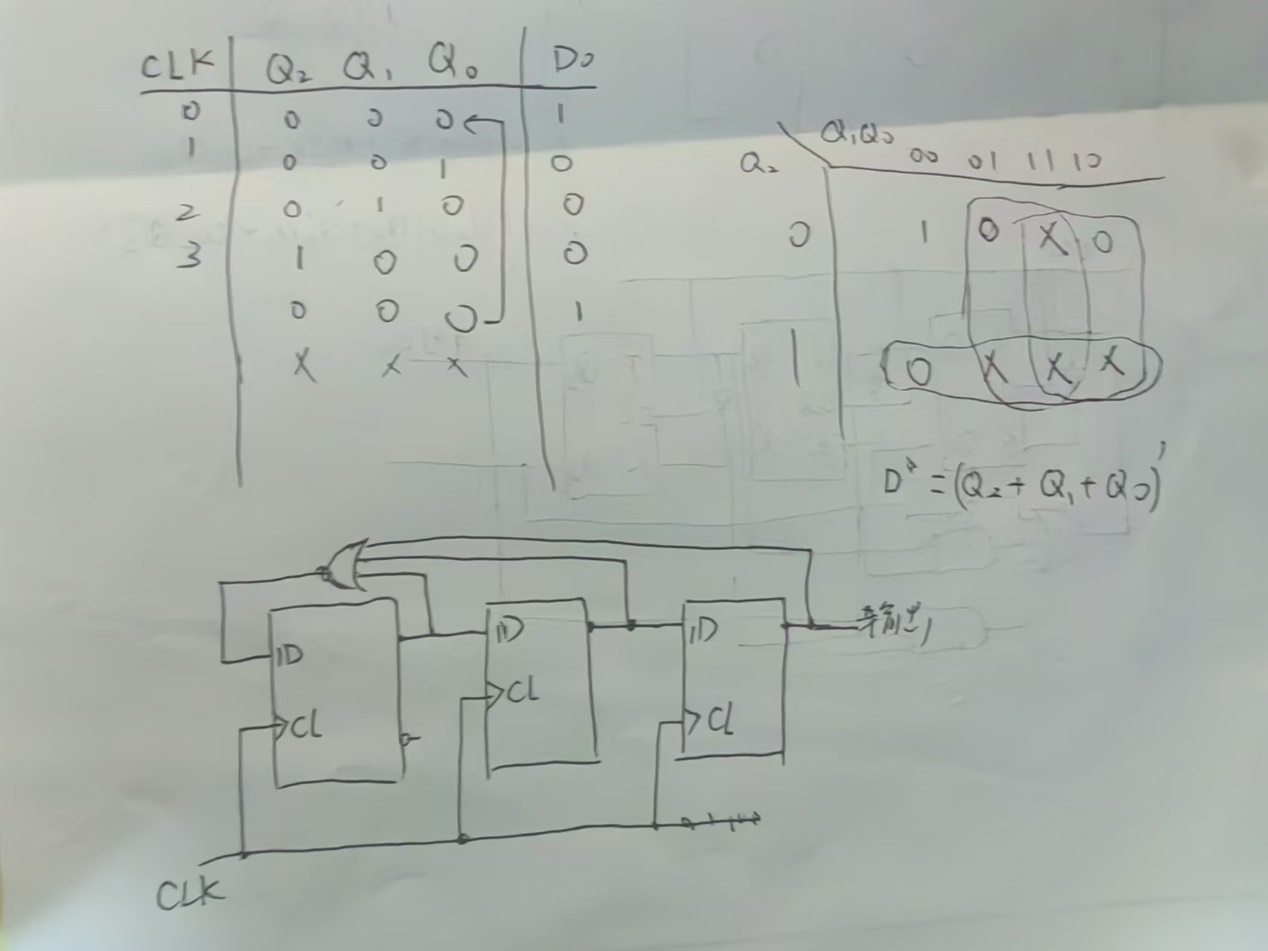 CLK Q₂ Q₁ Q₀ D₀
0 0 0 0 1
1 0 0 1 0
2 0 1 0 0
3 1 0 0 0
0 0 0 1
X X X
Q₁Q₀
Q₂ 00 01 11 10
0 1 0 X 0
1 0 X X X
D* = (Q₂ + Q₁ + Q₀)'
1D 1D 1D 输出
CL CL CL
CLK